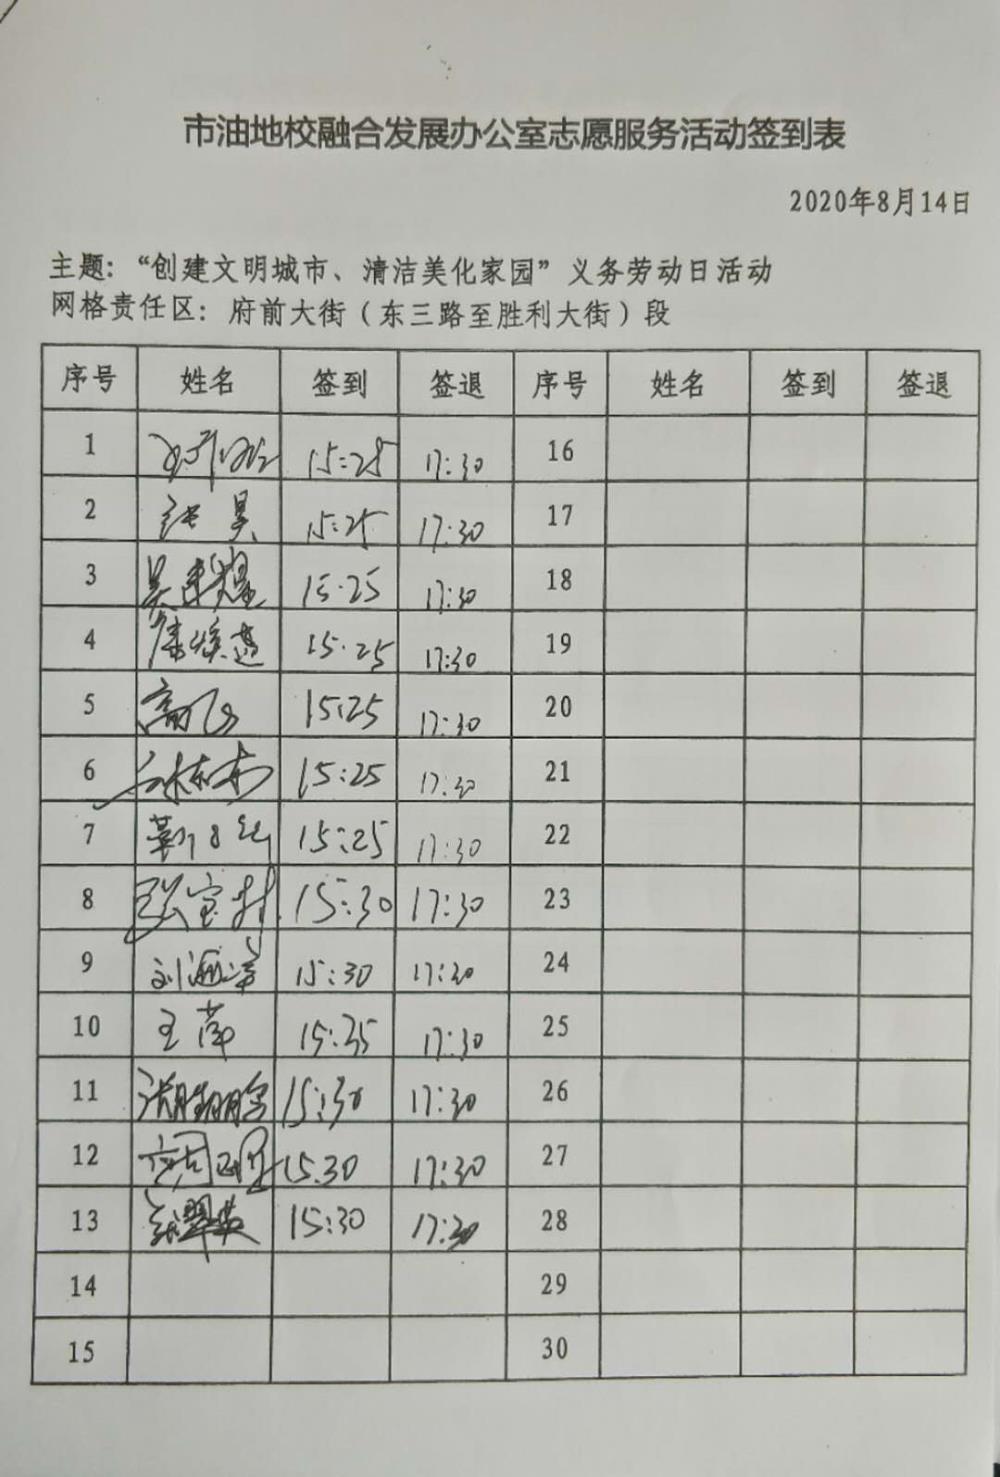 市油地校融合发展办公室志愿服务活动签到表
2020年8月14日
主题：“创建文明城市、清洁美化家园”义务劳动日活动
网格责任区：府前大街（东三路至胜利大街）段
序号 姓名 签到 签退 序号 姓名 签到 签退
1 15:25 17:30 16
2 张昊 15:25 17:30 17
3 15:25 17:30 18
4 15:25 17:30 19
5 高飞 15:25 17:30 20
6 15:25 17:30 21
7 15:25 17:30 22
8 15:30 17:30 23
9 15:30 17:30 24
10 王萍 15:35 17:30 25
11 15:30 17:30 26
12 15:30 17:30 27
13 张翠英 15:30 17:30 28
14 29
15 30